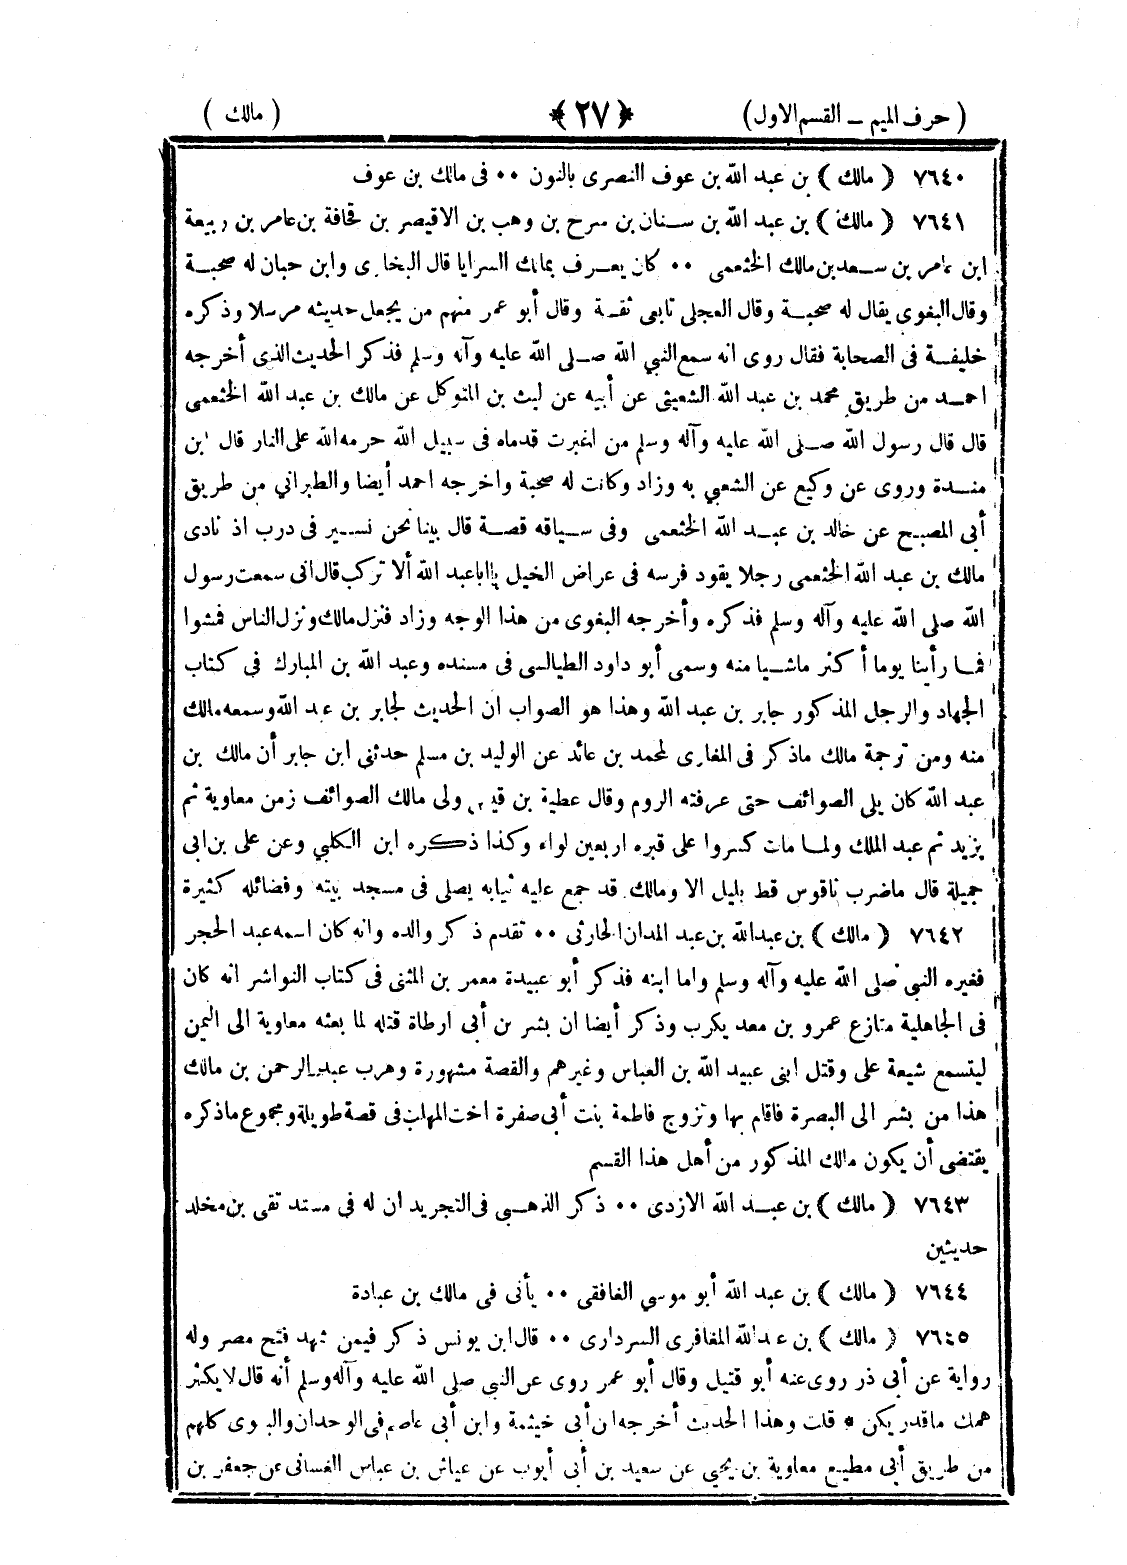 ( حرف الميم – القسم الاول) ﴿ ٢٧ ﴾ ( مالك )
٧٦٤٠ ( مالك ) بن عبد الله بن عوف النصرى بالنون ٠٠ فى مالك بن عوف
٧٦٤١ ( مالك ) بن عبد الله بن سنان بن سرح بن وهب بن الاقيصر بن قحافة بن عامر بن ربيعة
ابن عامر بن سعد بن مالك الخثعمى ٠٠ كان يعرف بمالك السرايا قال البخارى وابن حبان له صحبة
وقال البغوى يقال له صحبة وقال العجلى تابعى ثقة وقال أبو عمر منهم من يجعل حديثه مرسلا وذكره
خليفة فى الصحابة فقال روى انه سمع النبي الله صلى الله عليه وآله وسلم فذكر الحديث الذى أخرجه
احمد من طريق محمد بن عبد الله الشعيثى عن أبيه عن ليث بن المتوكل عن مالك بن عبد الله الخثعمى
قال قال رسول الله صلى الله عليه وآله وسلم من اغبرت قدماه فى سبيل الله حرمه الله على النار قال ابن
مندة وروى عن وكيع عن الشعبي به وزاد وكانت له صحبة واخرجه احمد أيضا والطبراني من طريق
أبى المصبح عن خالد بن عبد الله الخثعمى وفى سياقه قصة قال بينا نحن نسير فى درب اذ نادى
مالك بن عبد الله الخثعمى رجلا يقود فرسه فى عراض الخيل يا اباعبد الله ألا تركب قال انى سمعت رسول
الله صلى الله عليه وآله وسلم فذكره وأخرجه البغوى من هذا الوجه وزاد فنزل مالك ونزل الناس فمشوا
فما رأينا يوما أكثر ماشيا منه وسمى أبو داود الطيالسى فى مسنده وعبد الله بن المبارك فى كتاب
الجهاد والرجل المذكور جابر بن عبد الله وهذا هو الصواب ان الحديث لجابر بن عبد الله وسمعه مالك
منه ومن ترجمة مالك ماذكر فى المغازى لمحمد بن عائد عن الوليد بن مسلم حدثنى ابن جابر أن مالك بن
عبد الله كان يلى الصوائف حتى عرفته الروم وقال عطية بن قيس ولى مالك الصوائف زمن معاوية ثم
يزيد ثم عبد الملك ولما مات كسروا على قبره اربعين لواء وكذا ذكره ابن الكلبي وعن على بن ابى
جميلة قال ماضرب ناقوس قط بليل الا ومالك قد جمع عليه ثيابه يصلى فى مسجد بيته وفضائله كثيرة
٧٦٤٢ ( مالك ) بن عبدالله بن عبد المدان الحارثى ٠٠ تقدم ذكر والده وانه كان اسمه عبد الحجر
فغيره النبى صلى الله عليه وآله وسلم واما ابنه فذكر أبو عبيدة معمر بن المثنى فى كتاب النواشر انه كان
فى الجاهلية منازع عمرو بن معد يكرب وذكر أيضا ان بشر بن أبى ارطاة قتله لما بعثه معاوية الى اليمن
ليتسمع شيعة على وقتل ابنى عبيد الله بن العباس وغيرهم والقصة مشهورة وهرب عبد الرحمن بن مالك
هذا من بشر الى البصرة فاقام بها وتزوج فاطمة بنت أبى صفرة اخت المهلب فى قصة طويلة ومجموع ماذكره
يقتضى أن يكون مالك المذكور من أهل هذا القسم
٧٦٤٣ ( مالك ) بن عبد الله الازدى ٠٠ ذكر الذهبى فى التجريد ان له فى مسند تقى بن مخلد
حديثين
٧٦٤٤ ( مالك ) بن عبد الله أبو موسي الغافقى ٠٠ يأتى فى مالك بن عبادة
٧٦٤٥ ( مالك ) بن عبد الله المغافرى السردارى ٠٠ قال ابن يونس ذكر فيمن شهد فتح مصر وله
رواية عن أبى ذر روى عنه أبو قتيل وقال أبو عمر روى عن النبى صلى الله عليه وآله وسلم أنه قال لا يكثر
همك ماقدر يكن * قلت وهذا الحديث أخرجه ابن أبى خيثمة وابن أبى عاصم فى الوحدان والبغوى كلهم
من طريق أبى مطيع معاوية بن يحيى عن سعيد بن أبى أيوب عن عياش بن عباس الغسانى عن جعفر بن